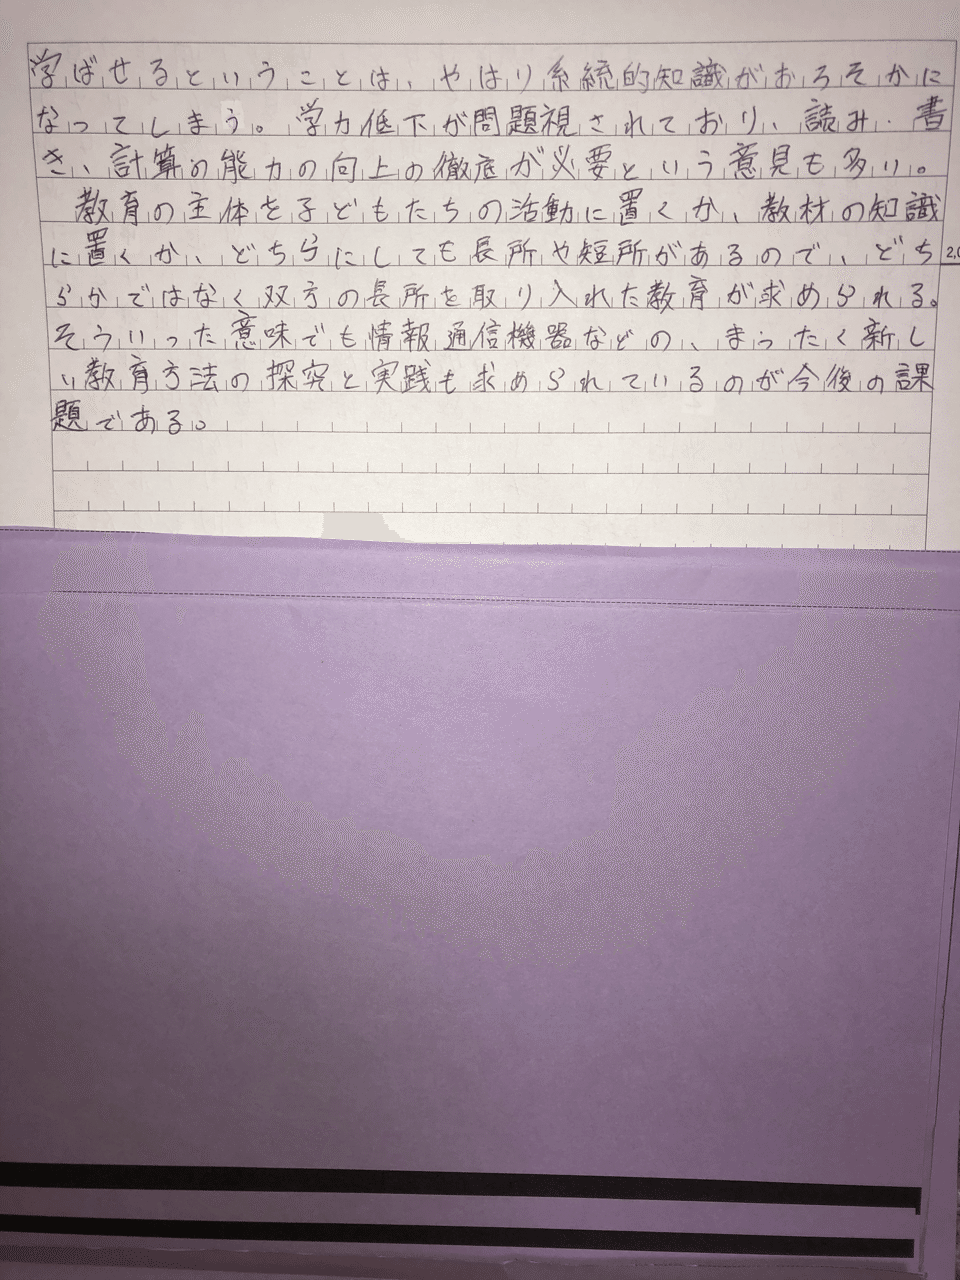 学ばせるということは、やはり系統的知識がおろそかに
なってしまう。学力低下が問題視されており、読み・書
き、計算の能力の向上の徹底が必要という意見も多い。
教育の主体を子どもたちの活動に置くか、教材の知識
に置くか、どちらにしても長所や短所があるので、どち
らかではなく双方の長所を取り入れた教育が求められる。
そういった意味でも情報通信機器などの、まったく新し
い教育方法の探究と実践も求められているのが今後の課
題である。